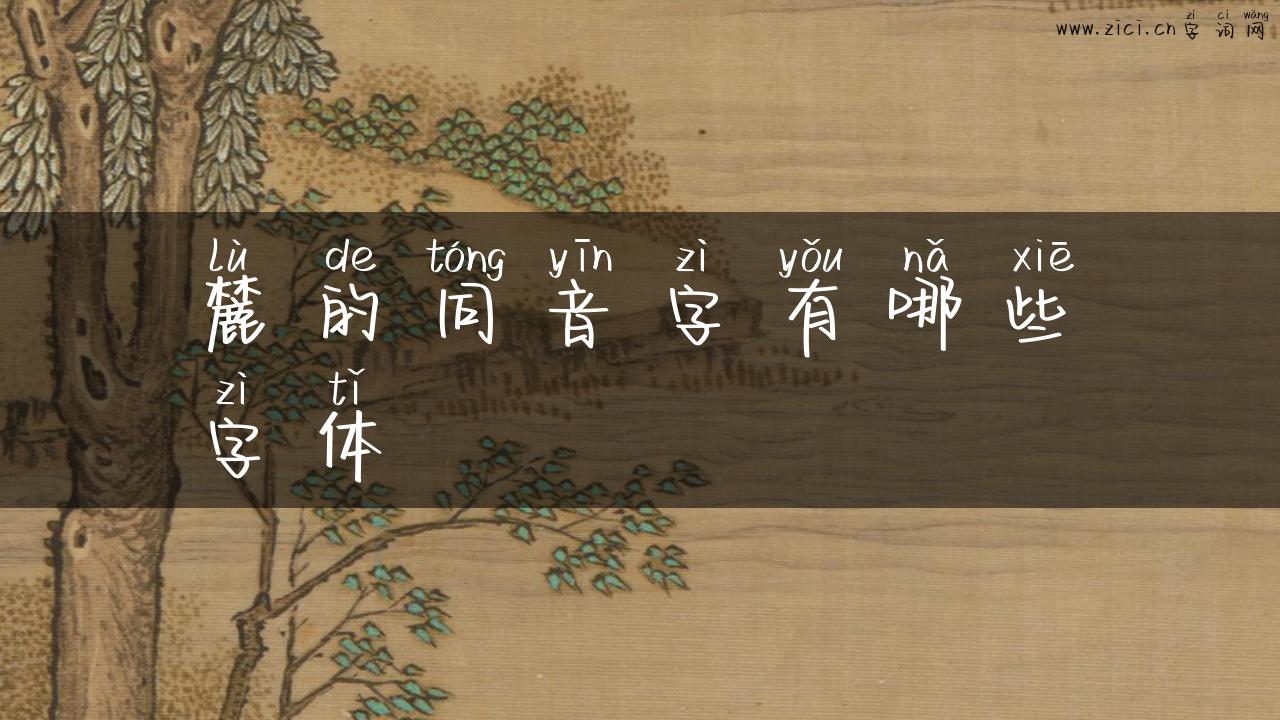 zì cí wǎng
www.zici.cn 字词网
lù de tóng yīn zì yǒu nǎ xiē
麓的同音字有哪些
zì tǐ
字体